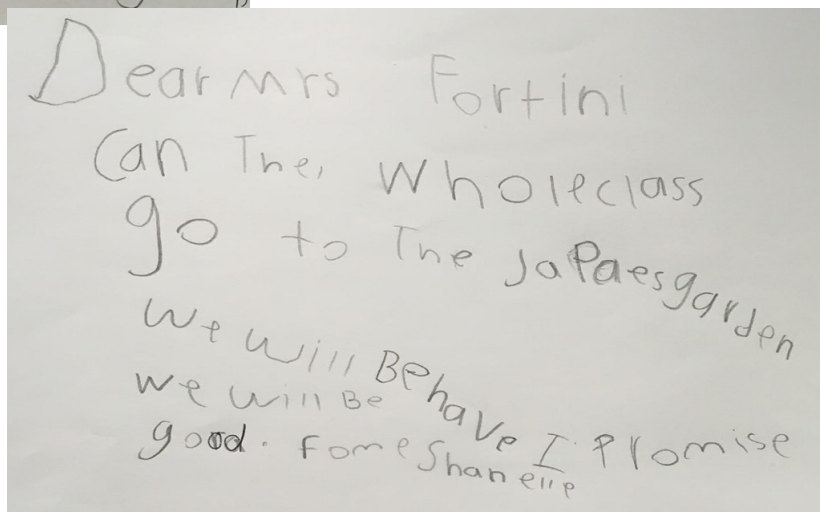 Dear Mrs Fortini
Can The, Wholeclass
go to The JaPaesgarden
We Will BehaVe I Promise
We Will Be
good. fome Shanelle